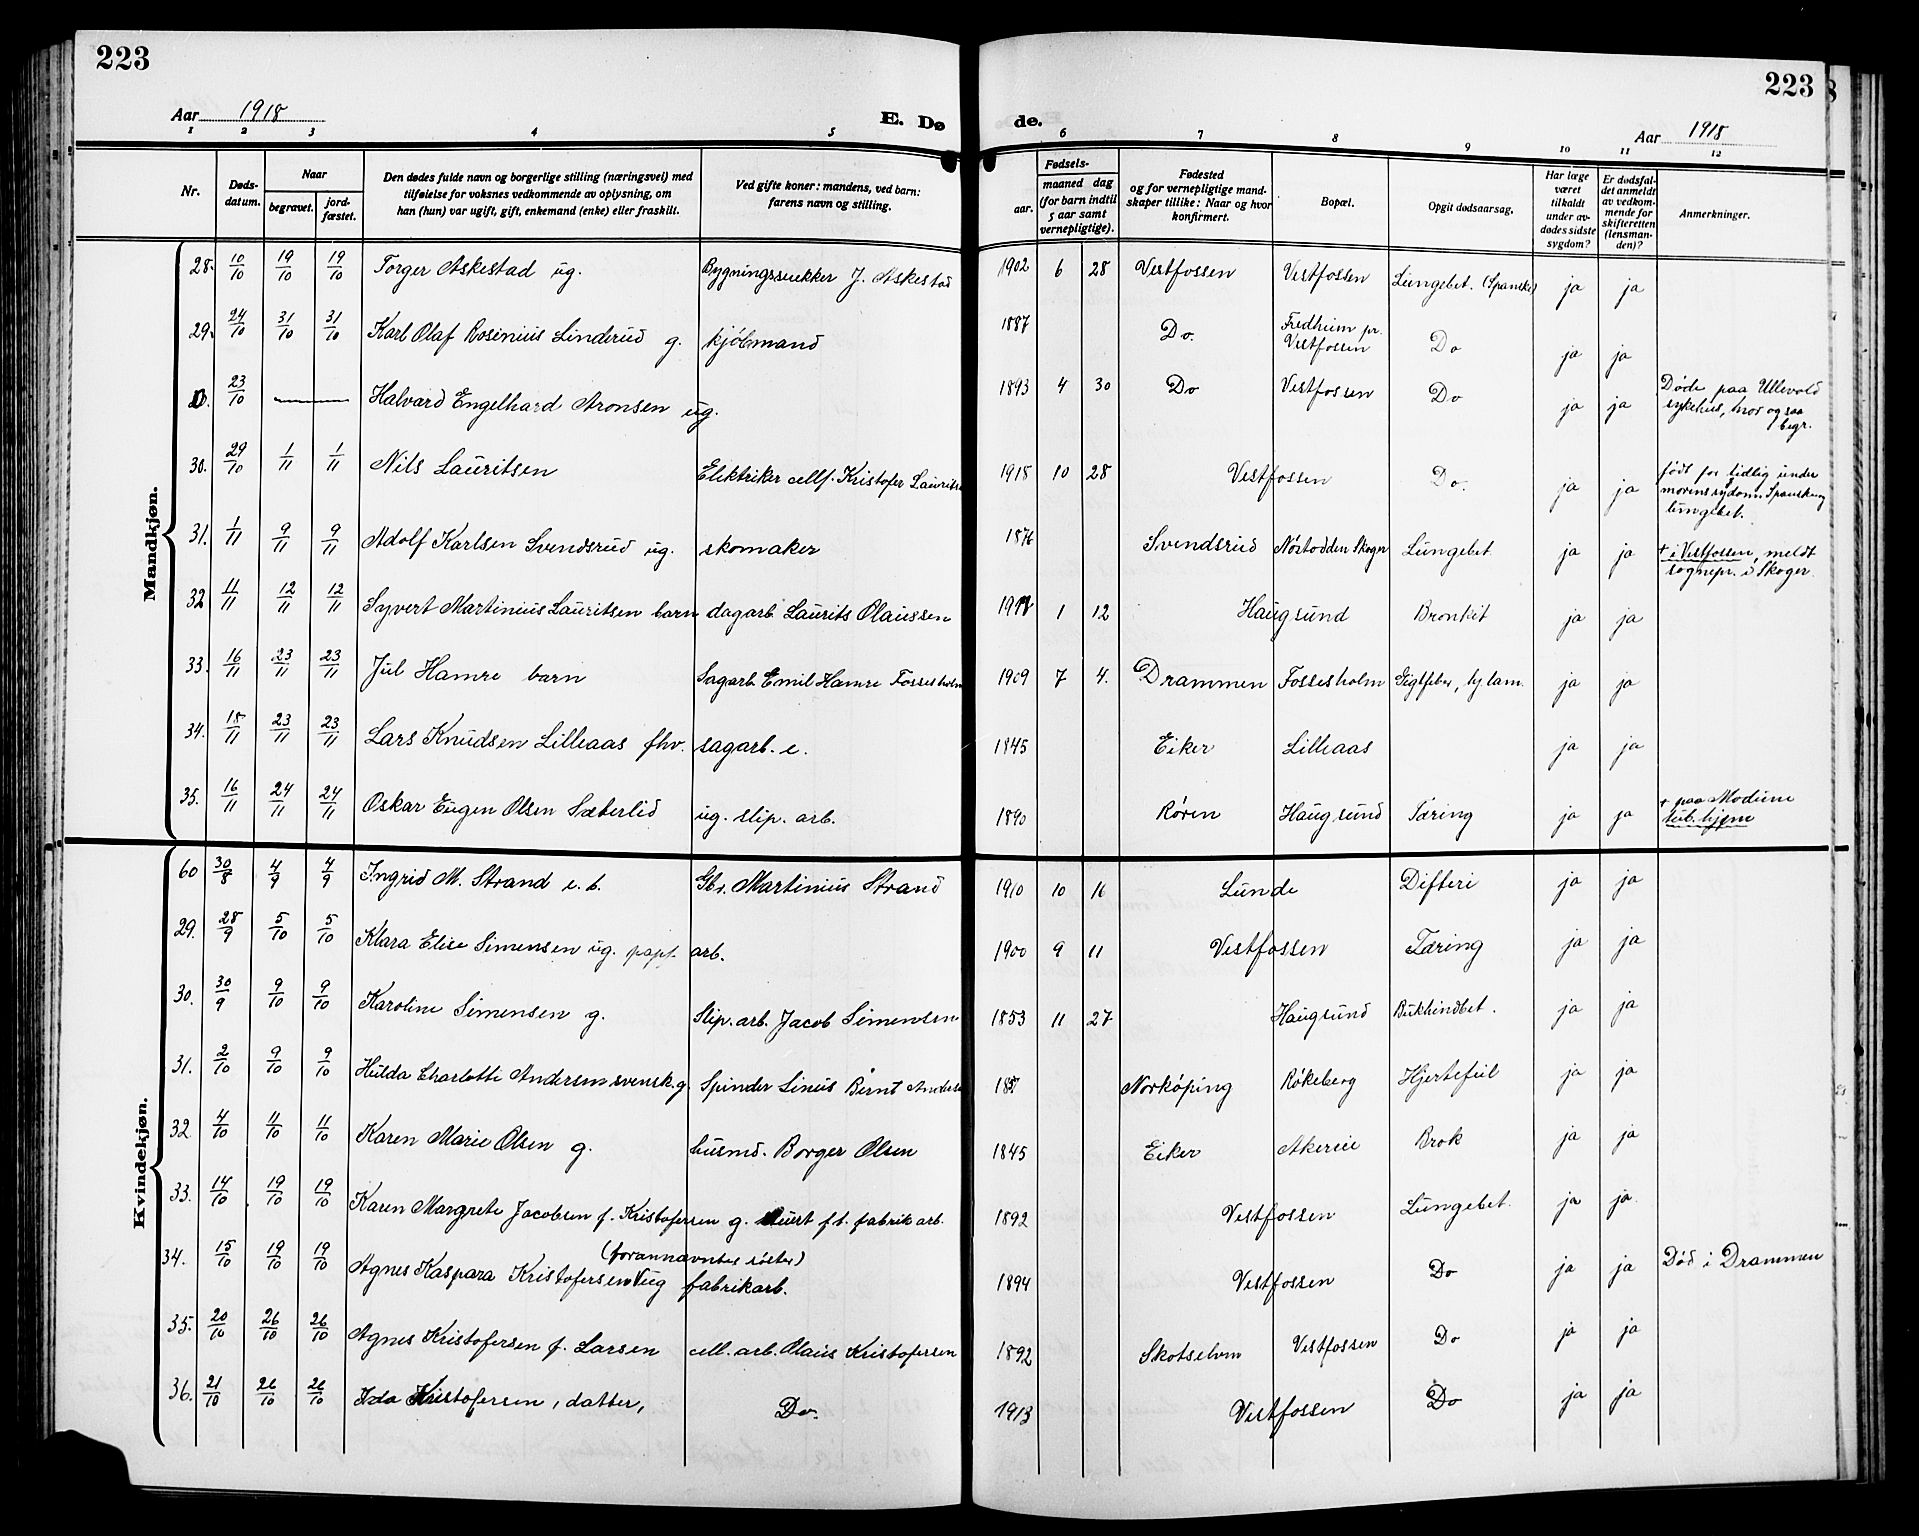 223
223
Aar 1918
E. Dø
de.
Aar 1918
1 2 3 4 5 6 7 8 9 10 11 12
Nr.
Døds-
datum.
Naar
begravet.
jord-
fæstet.
Den dødes fulde navn og borgerlige stilling (næringsvei) med
tilføielse for voksnes vedkommende av oplysning, om
han (hun) var ugift, gift, enkemand (enke) eller fraskilt.
Ved gifte koner: mandens, ved barn:
farens navn og stilling.
Fødsels-
aar.
maaned dag
(for barn indtil
5 aar samt
vernepligtige).
Fødested
og for vernepligtige mand-
skaper tillike: Naar og hvor
konfirmert.
Bopæl.
Opgit dødsaarsag.
Har læge
været
tilkaldt
under av-
dødes sidste
sygdom?
Er dødsfal-
det anmeldt
av vedkom-
mende for
skifteretten
(lensman-
den)?
Anmerkninger.
Mandkjøn.
28. 10/10 19/10 19/10 Torger Askestad ug. Bygningssnekker J. Askestad 1902 6 28 Vestfossen Vestfossen Lungebet. (Spanske) ja ja
29. 24/10 31/10 31/10 Karl Olaf Rosenius Linderud g. kjøbmand 1887 Do. Fredheim pr. Vestfossen Do ja ja
23/10 — Halvard Engelhard Aronsen ug. 1893 4 30 Do Vestfossen Do ja ja Døde paa Ullevold
sykehus, hvor ogsaa
begr.
30. 29/10 1/11 1/11 Nils Lauritsen Elektriker cellf. Kristofer Lauritse 1918 10 28 Vestfossen Do. ja ja født for tidlig under
morens sydom Spanskeng
lungebet.
31. 1/11 9/11 9/11 Adolf Karlsen Svendsrud ug. skomaker 1876 Svendsrud Nöstodden Skoger Lungebet ja ja + i Vestfossen, meldt
sognepr. i Skoger.
32 11/11 12/11 12/11 Syvert Martinius Lauritsen barn dagarb. Laurits Olaussen 1 12 Haugsund Bronkit ja ja
33. 16/11 23/11 23/11 Jul Hamre barn Sagarb. Emil Hamre Fossesholm 1909 7 4. Drammen Fossesholm Gigtfeber, hj.lam. ja ja
34. 18/11 23/11 23/11 Lars Knudsen Lilleaas fhv. sagarb. e. 1845 Eiker Lilleaas ja ja
35. 16/11 24/11 24/11 Oskar Eugen Olsen Sæterlid ug. slip. arb. 1890 Røren Haugsund Tæring ja ja + paa Modum
tub. hjem
Kvindekjøn.
60 30/8 4/9 4/9 Ingrid M. Strand e. b. Gbr. Martinius Strand 1910 10 16 Lunde Difteri ja ja
29. 28/9 5/10 5/10 Klara Elise Simensen ug. papf. arb. 1900 9 11 Vestfossen Tæring ja ja
30. 30/9 9/10 9/10 Karoline Simensen g. Slip. arb. Jacob Simensen 1853 11 27 Haugsund Bukhindbet. ja ja
31. 2/10 9/10 9/10 Hulda Charlotte Andersen svensk. g. Spinder Linus Bernt Anders Norköping Rökeberg Hjertefeil ja ja
32 4/10 11/10 11/10 Karen Marie Olsen g. husmd. Borger Olsen 1845 Eiker Akereie Brok ja ja
33. 14/10 19/10 19/10 Karen Margrete Jacobsen f. Kristofersen g. f.t. fabrik arb. 1892 Vestfossen Lungebet. ja ja
34. 15/10 19/10 19/10 (forannævntes söster)
Agnes Kaspara Kristofersen ug fabrikarb. 1894 Vestfossen Do ja ja Död i Drammen
35. 20/10 26/10 26/10 Agnes Kristofersen f. Larsen cell. arb. Olaus Kristofersen 1892 Skotselven Vestfossen Do ja ja
36. 21/10 26/10 26/10 Ida Kristofersen, datter, Do. 1913 Vestfossen Do ja ja